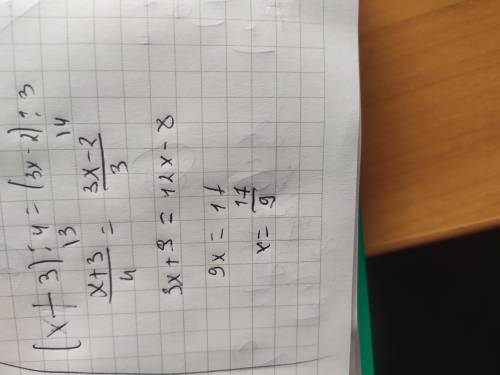 (x+3):4 = (3x-2):3
x+3/4 |3 = 3x-2/3 |4
3x+9 = 12x-8
9x = 17
x = 17/9